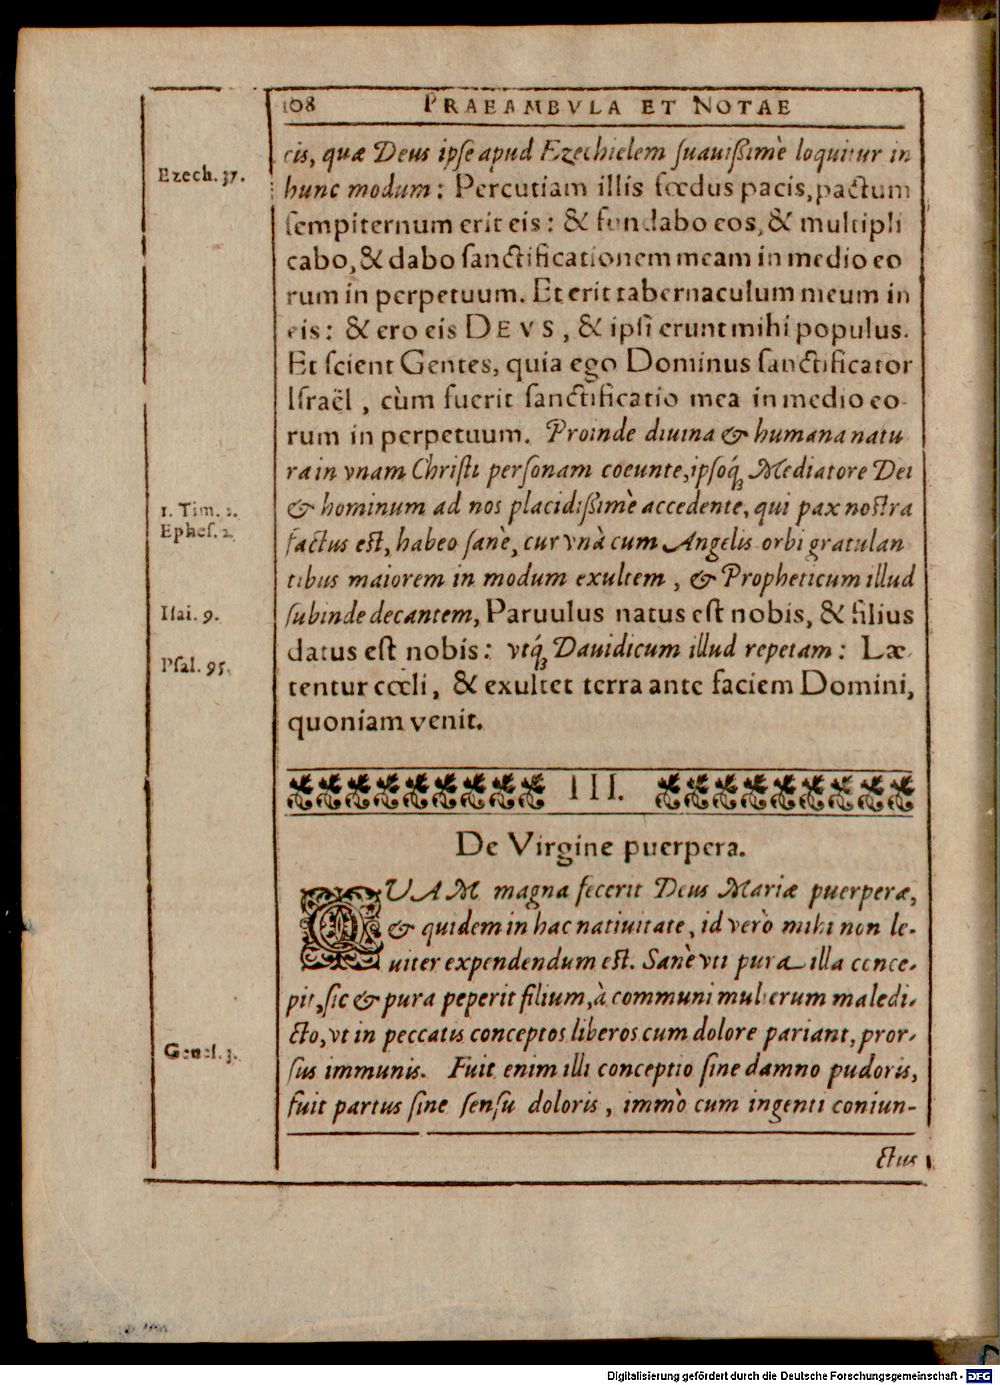 108 PRAEAMBVLA ET NOTAE
cis, quæ Deus ipse apud Ezechielem suauißimè loquitur in
Ezech. 37.
hunc modum: Percutiam illis fœdus pacis, pactum
sempiternum erit eis: & fundabo eos, & multipli
cabo, & dabo sanctificationem meam in medio eo
rum in perpetuum. Et erit tabernaculum meum in
eis: & ero eis DEVS, & ipsi erunt mihi populus.
Et scient Gentes, quia ego Dominus sanctificator
Israël, cùm fuerit sanctificatio mea in medio eo-
rum in perpetuum. Proinde diuina & humana natu
ra in vnam Christi personam coeunte, ipsoq́; Mediatore Dei
1. Tim. 2.
& hominum ad nos placidißimè accedente, qui pax nostra
Ephes. 2.
factus est, habeo sanè, cur vnà cum Angelis orbi gratulan
tibus maiorem in modum exultem, & Propheticum illud
Isai. 9.
subinde decantem, Paruulus natus est nobis, & filius
datus est nobis: vtq́; Dauidicum illud repetam: Læ-
Psal. 95.
tentur cœli, & exultet terra ante faciem Domini,
quoniam venit.
III.
De Virgine puerpera.
QUAM magna fecerit Deus Mariæ puerperæ,
& quidem in hac natiuitate, id verò mihi non le-
uiter expendendum est. Sanè vti pura illa conce-
pit, sic & pura peperit filium, à communi mulierum maledi-
cto, vt in peccatis conceptos liberos cum dolore pariant, pror-
Genes. 3.
sus immunis. Fuit enim illi conceptio sine damno pudoris,
fuit partus sine sensu doloris, immò cum ingenti coniun-
ctus
Digitalisierung gefördert durch die Deutsche Forschungsgemeinschaft - DFG